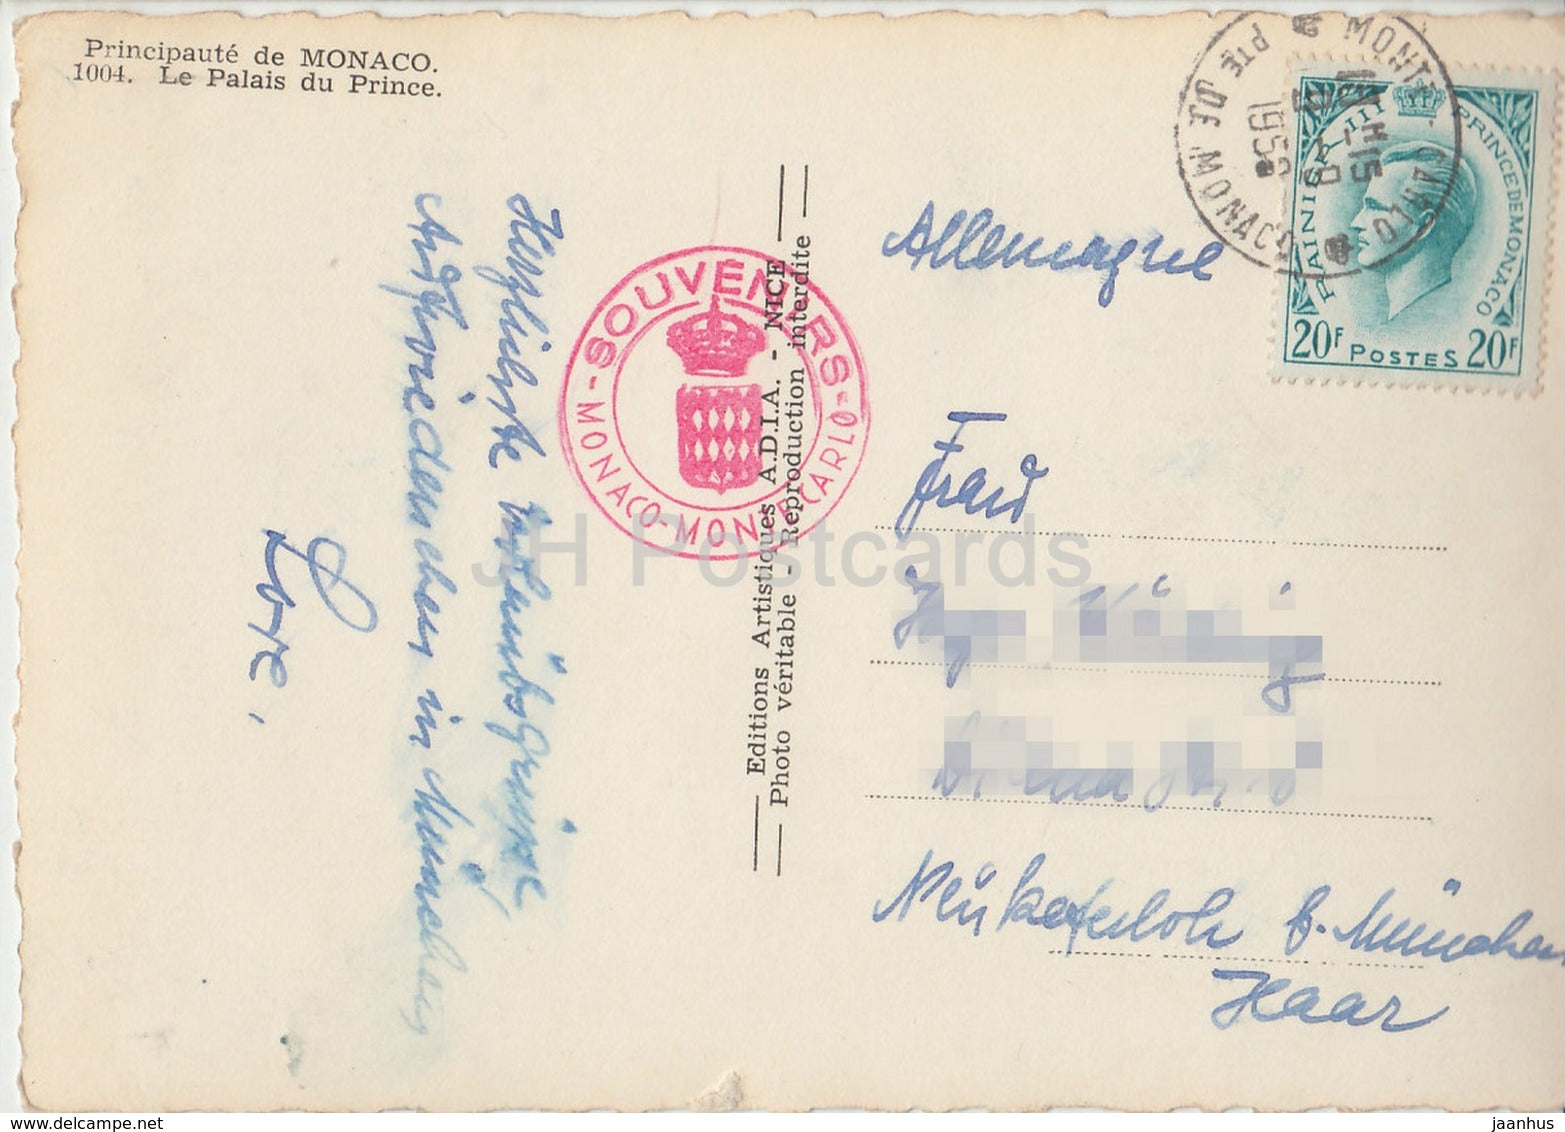 Principauté de MONACO.
1004. Le Palais du Prince.
Herzlichste Urlaubsgrüsse
Auf Wiedersehen in München
Lore.
SOUVENIRS
MONACO-MONTE CARLO
Editions Artistiques A.D.I.A. - NICE
Photo véritable - Reproduction interdite
MONTE-CARLO
PTE DE MONACO
H 15
RAINIER III PRINCE DE MONACO
20F POSTES 20F
Allemagne
Frau
Neukeferloh b. München
Haar
JH Postcards
jaanhus